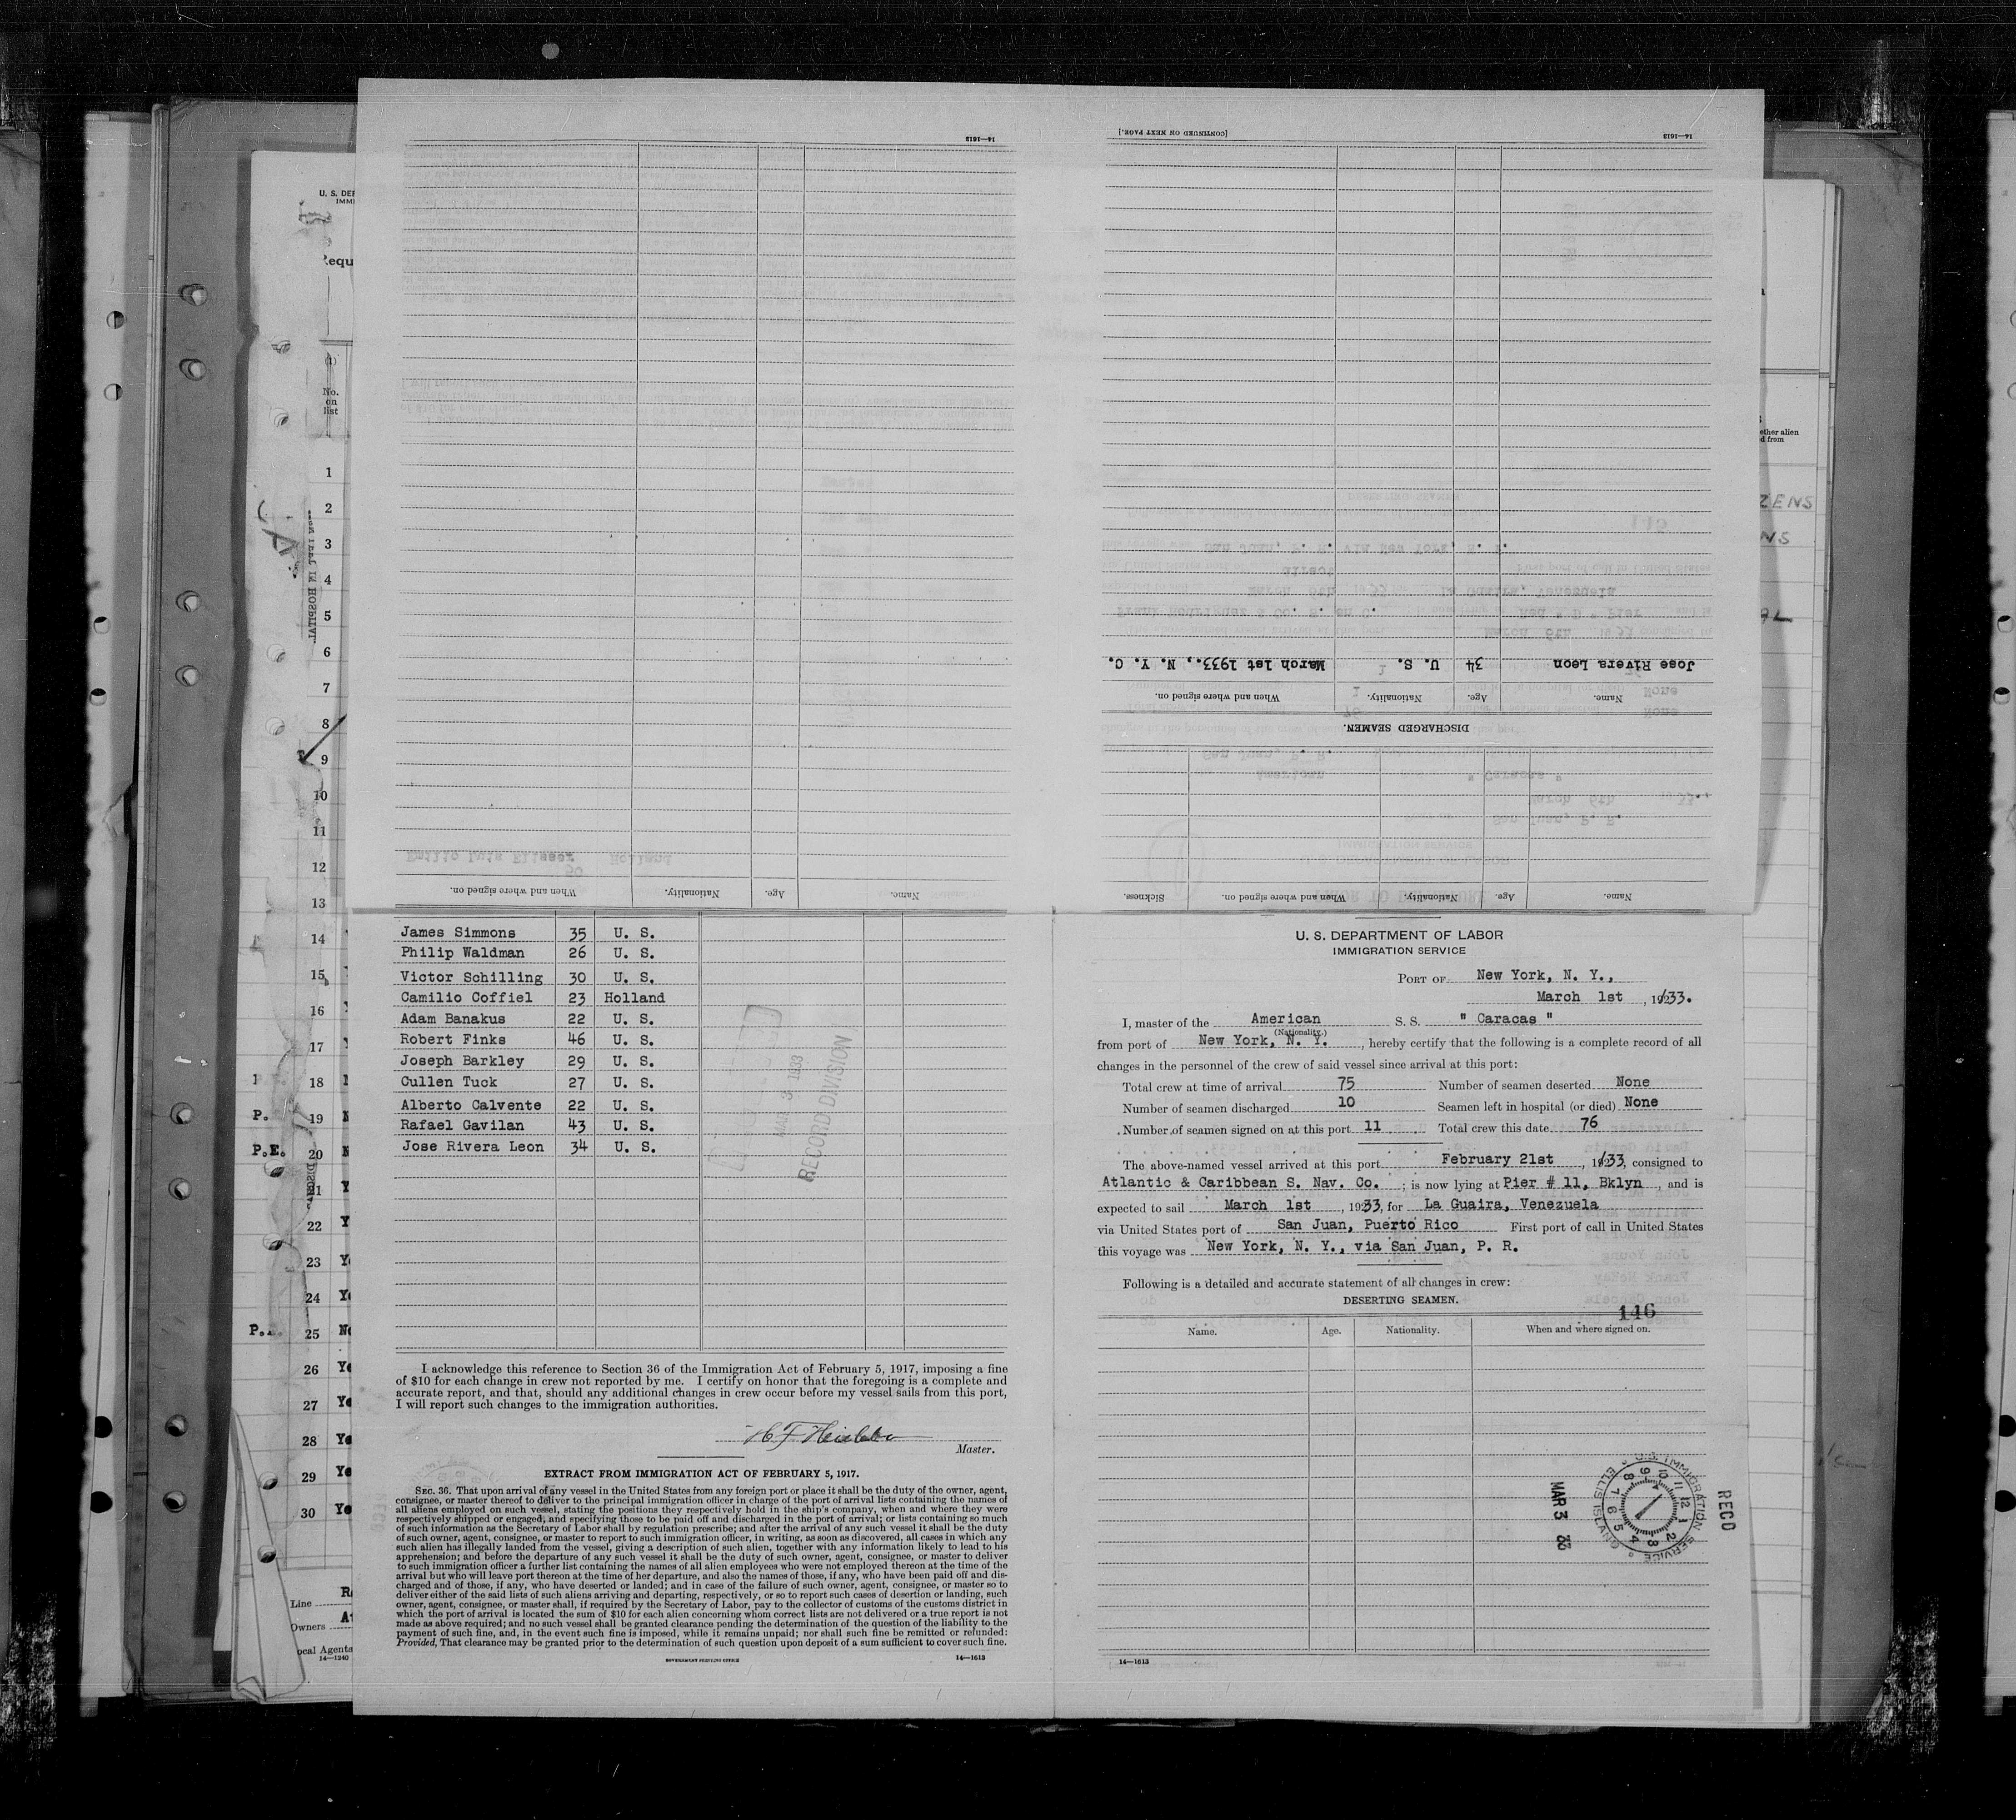 U. S. DEP
IMMI
Requ
(1)
No.
on
list
1
2
3
4
5
6
7
8
9
10
11
12
13
14
15
16
17
18
P. 19
P.E. 20
21
22
23
24
25
26
27
28
29
30
Line
Owners
ocal Agents
14—1240
14—1613
Name. Age. Nationality. When and where signed on.
[CONTINUED ON NEXT PAGE.]
14—1613
Name. Age. Nationality. When and where signed on. Sickness.
DISCHARGED SEAMEN.
Name. Age. Nationality. When and where signed on.
Jose Rivera Leon 34 U. S. March 1st 1933., N. Y. C.
ether alien
d from
ZENS
NS
James Simmons 35 U. S.
Philip Waldman 26 U. S.
Victor Schilling 30 U. S.
Camilio Coffiel 23 Holland
Adam Banakus 22 U. S.
Robert Finks 46 U. S.
Joseph Barkley 29 U. S.
Cullen Tuck 27 U. S.
Alberto Calvente 22 U. S.
Rafael Gavilan 43 U. S.
Jose Rivera Leon 34 U. S.
MAR 3 1933
RECORD DIVISION
I acknowledge this reference to Section 36 of the Immigration Act of February 5, 1917, imposing a fine
of $10 for each change in crew not reported by me. I certify on honor that the foregoing is a complete and
accurate report, and that, should any additional changes in crew occur before my vessel sails from this port,
I will report such changes to the immigration authorities.
Master.
EXTRACT FROM IMMIGRATION ACT OF FEBRUARY 5, 1917.
SEC. 36. That upon arrival of any vessel in the United States from any foreign port or place it shall be the duty of the owner, agent,
consignee, or master thereof to deliver to the principal immigration officer in charge of the port of arrival lists containing the names of
all aliens employed on such vessel, stating the positions they respectively hold in the ship's company, when and where they were
respectively shipped or engaged, and specifying those to be paid off and discharged in the port of arrival; or lists containing so much
of such information as the Secretary of Labor shall by regulation prescribe; and after the arrival of any such vessel it shall be the duty
of such owner, agent, consignee, or master to report to such immigration officer, in writing, as soon as discovered, all cases in which any
such alien has illegally landed from the vessel, giving a description of such alien, together with any information likely to lead to his
apprehension; and before the departure of any such vessel it shall be the duty of such owner, agent, consignee, or master to deliver
to such immigration officer a further list containing the names of all alien employees who were not employed thereon at the time of the
arrival but who will leave port thereon at the time of her departure, and also the names of those, if any, who have been paid off and dis-
charged and of those, if any, who have deserted or landed; and in case of the failure of such owner, agent, consignee, or master so to
deliver either of the said lists of such aliens arriving and departing, respectively, or so to report such cases of desertion or landing, such
owner, agent, consignee, or master shall, if required by the Secretary of Labor, pay to the collector of customs of the customs district in
which the port of arrival is located the sum of $10 for each alien concerning whom correct lists are not delivered or a true report is not
made as above required; and no such vessel shall be granted clearance pending the determination of the question of the liability to the
payment of such fine, and, in the event such fine is imposed, while it remains unpaid; nor shall such fine be remitted or refunded:
Provided, That clearance may be granted prior to the determination of such question upon deposit of a sum sufficient to cover such fine.
GOVERNMENT PRINTING OFFICE 14—1613
U. S. DEPARTMENT OF LABOR
IMMIGRATION SERVICE
PORT OF New York, N. Y.,
March 1st, 1933.
I, master of the American S. S. " Caracas "
(Nationality.)
from port of New York, N. Y., hereby certify that the following is a complete record of all
changes in the personnel of the crew of said vessel since arrival at this port:
Total crew at time of arrival 75 Number of seamen deserted None
Number of seamen discharged 10 Seamen left in hospital (or died) None
Number of seamen signed on at this port 11 Total crew this date 76
The above-named vessel arrived at this port February 21st, 1933, consigned to
Atlantic & Caribbean S. Nav. Co.; is now lying at Pier # 11, Bklyn, and is
expected to sail March 1st, 1933, for La Guaira, Venezuela
via United States port of San Juan, Puerto Rico First port of call in United States
this voyage was New York, N. Y., via San Juan, P. R.
Following is a detailed and accurate statement of all changes in crew:
DESERTING SEAMEN.
146
Name. Age. Nationality. When and where signed on.
U.S. IMMIGRATION SERVICE ELLIS ISLAND
MAR 3 33
RECD
14—1613